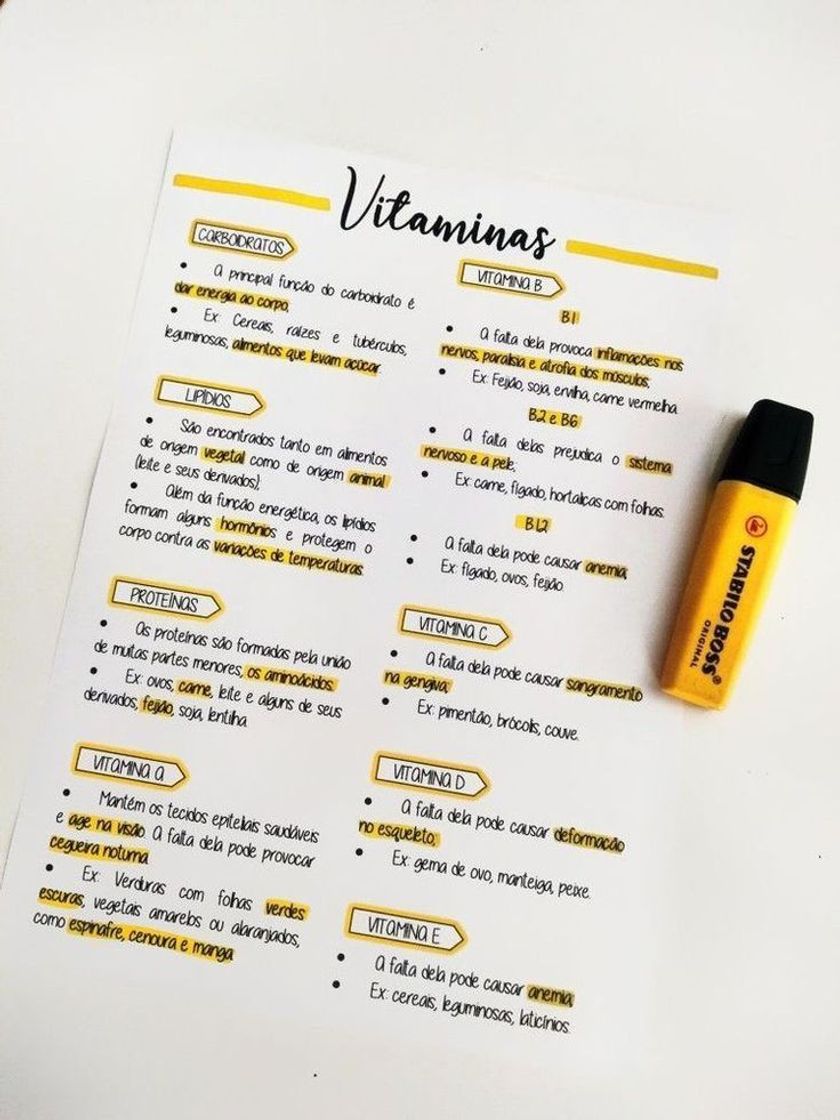 Vitaminas
CARBOIDRATOS
A principal função do carboidrato é
dar energia ao corpo;
Ex: Cereais, raízes e tubérculos,
leguminosas, alimentos que levam açúcar.
LIPÍDIOS
São encontrados tanto em alimentos
de origem vegetal como de origem animal
(leite e seus derivados);
Além da função energética, os lipídios
formam alguns hormônios e protegem o
corpo contra as variações de temperaturas.
PROTEÍNAS
As proteínas são formadas pela união
de muitas partes menores, os aminoácidos.
Ex: ovos, carne, leite e alguns de seus
derivados, feijão, soja, lentilha.
VITAMINA A
Mantém os tecidos epiteliais saudáveis
e age na visão. A falta dela pode provocar
cegueira noturna.
Ex: Verduras com folhas verdes
escuras, vegetais amarelos ou alaranjados,
como espinafre, cenoura e manga.
VITAMINA B
B1
A falta dela provoca inflamações nos
nervos, paralisia e atrofia dos músculos;
Ex: Feijão, soja, ervilha, carne vermelha.
B2 e B6
A falta delas prejudica o sistema
nervoso e a pele;
Ex: carne, fígado, hortaliças com folhas.
B12
A falta dela pode causar anemia;
Ex: fígado, ovos, feijão.
VITAMINA C
A falta dela pode causar sangramento
na gengiva;
Ex: pimentão, brócolis, couve.
VITAMINA D
A falta dela pode causar deformação
no esqueleto;
Ex: gema de ovo, manteiga, peixe.
VITAMINA E
A falta dela pode causar anemia;
Ex: cereais, leguminosas, laticínios.
STABILO BOSS®
ORIGINAL